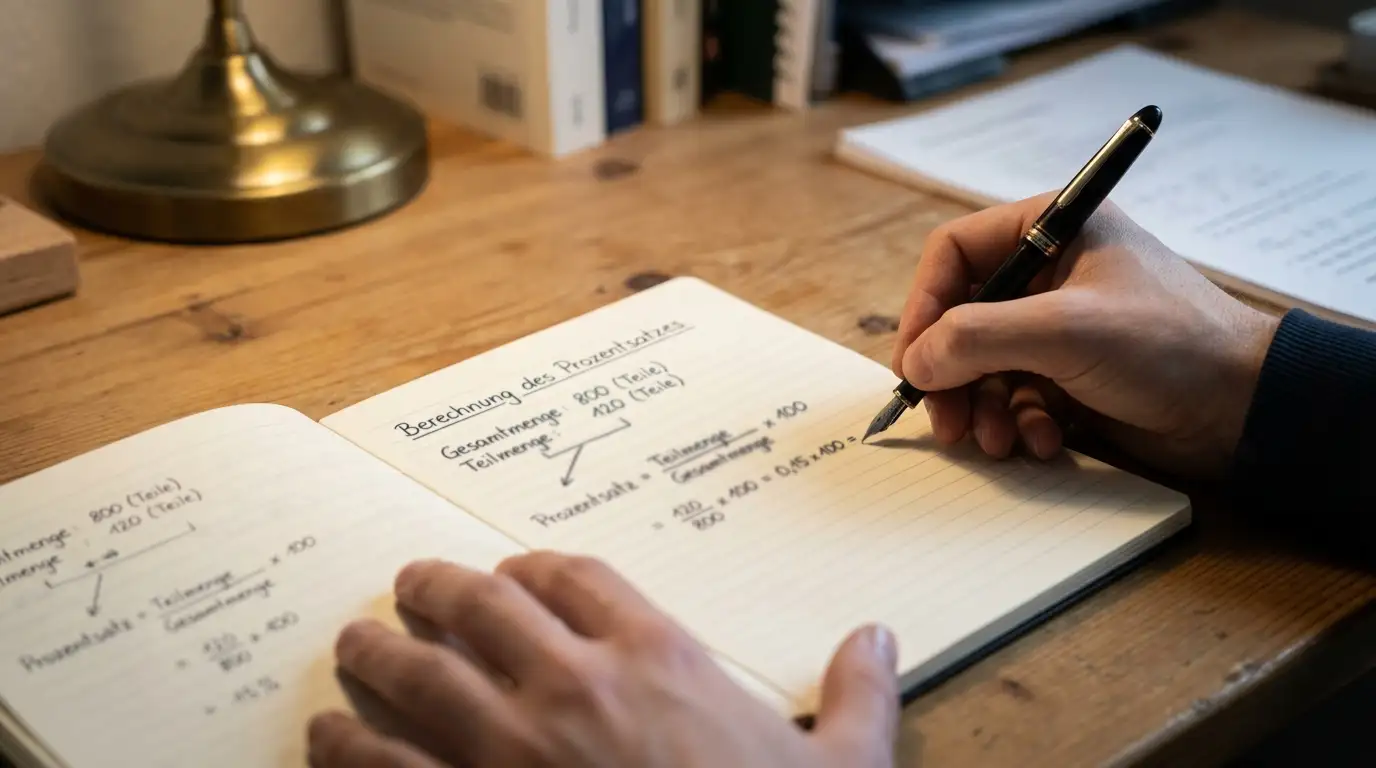 800 (Teile)
120 (Teile)
Prozentsatz = Teilmenge / Gesamtmenge × 100
= 120 / 800 × 100
= 15%
Berechnung des Prozentsatzes
Gesamtmenge: 800 (Teile)
Teilmenge: 120 (Teile)
Prozentsatz = Teilmenge / Gesamtmenge × 100
= 120 / 800 × 100 = 0,15 × 100 =